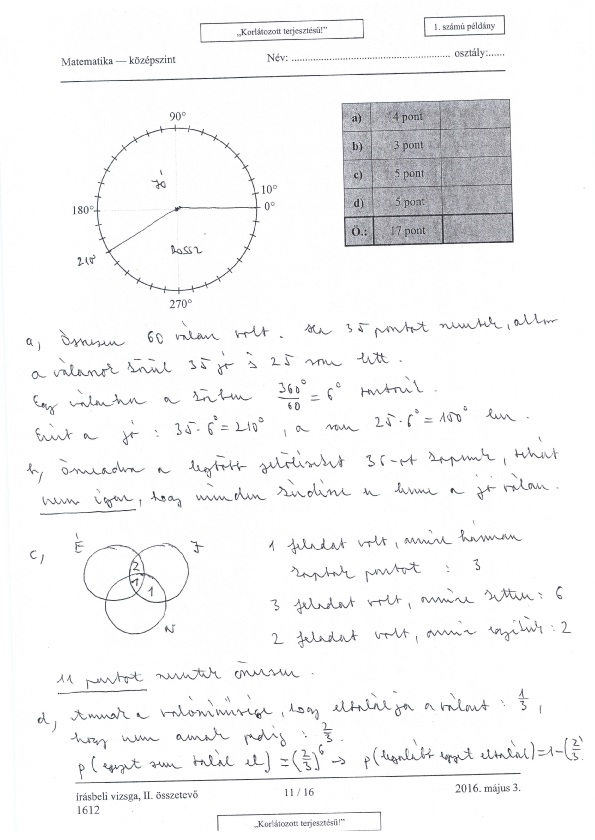 „Korlátozott terjesztésű!”
1. számú példány
Matematika — középszint Név: ........................................................ osztály:......
90°
Jó
10°
0°
180°
210°
Rossz
270°
a) 4 pont
b) 3 pont
c) 5 pont
d) 5 pont
Ö.: 17 pont
a, Összesen 60 válasz volt. Ha 35 pontot, akkor
a válaszok közül 35 jó és 25 rossz lett.
Egy válaszhoz a körben 360°/60 = 6° tartozik.
Ezért a jó : 35·6° = 210°, a rossz 25·6° = 150° lesz.
b, a legtöbb 36-ot kapunk, tehát
nem igaz, hogy minden kérdésre ez lenne a jó válasz.
c, É J
2
1 1
N
1 feladat volt, amire hárman
kaptak pontot : 3
3 feladat volt, amire ketten : 6
2 feladat volt, amire : 2
11 pontot szereztek összesen.
d, Annak a valószínűsége, hogy eltalálja a választ : 1/3,
hogy nem annak pedig : 2/3.
p(egyet sem talál el) = (2/3)^6 → p(legalább egyet eltalál) = 1-(2/3)
írásbeli vizsga, II. összetevő 11 / 16 2016. május 3.
1612
„Korlátozott terjesztésű!”